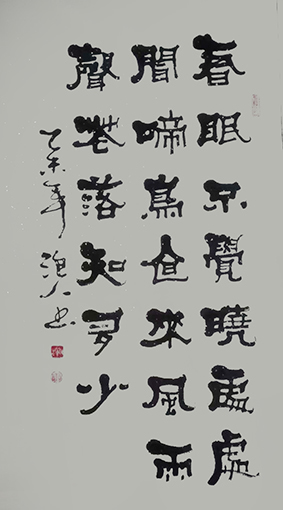 春眠不覺曉處處
聞啼鳥夜來風雨
聲花落知多少
乙未年